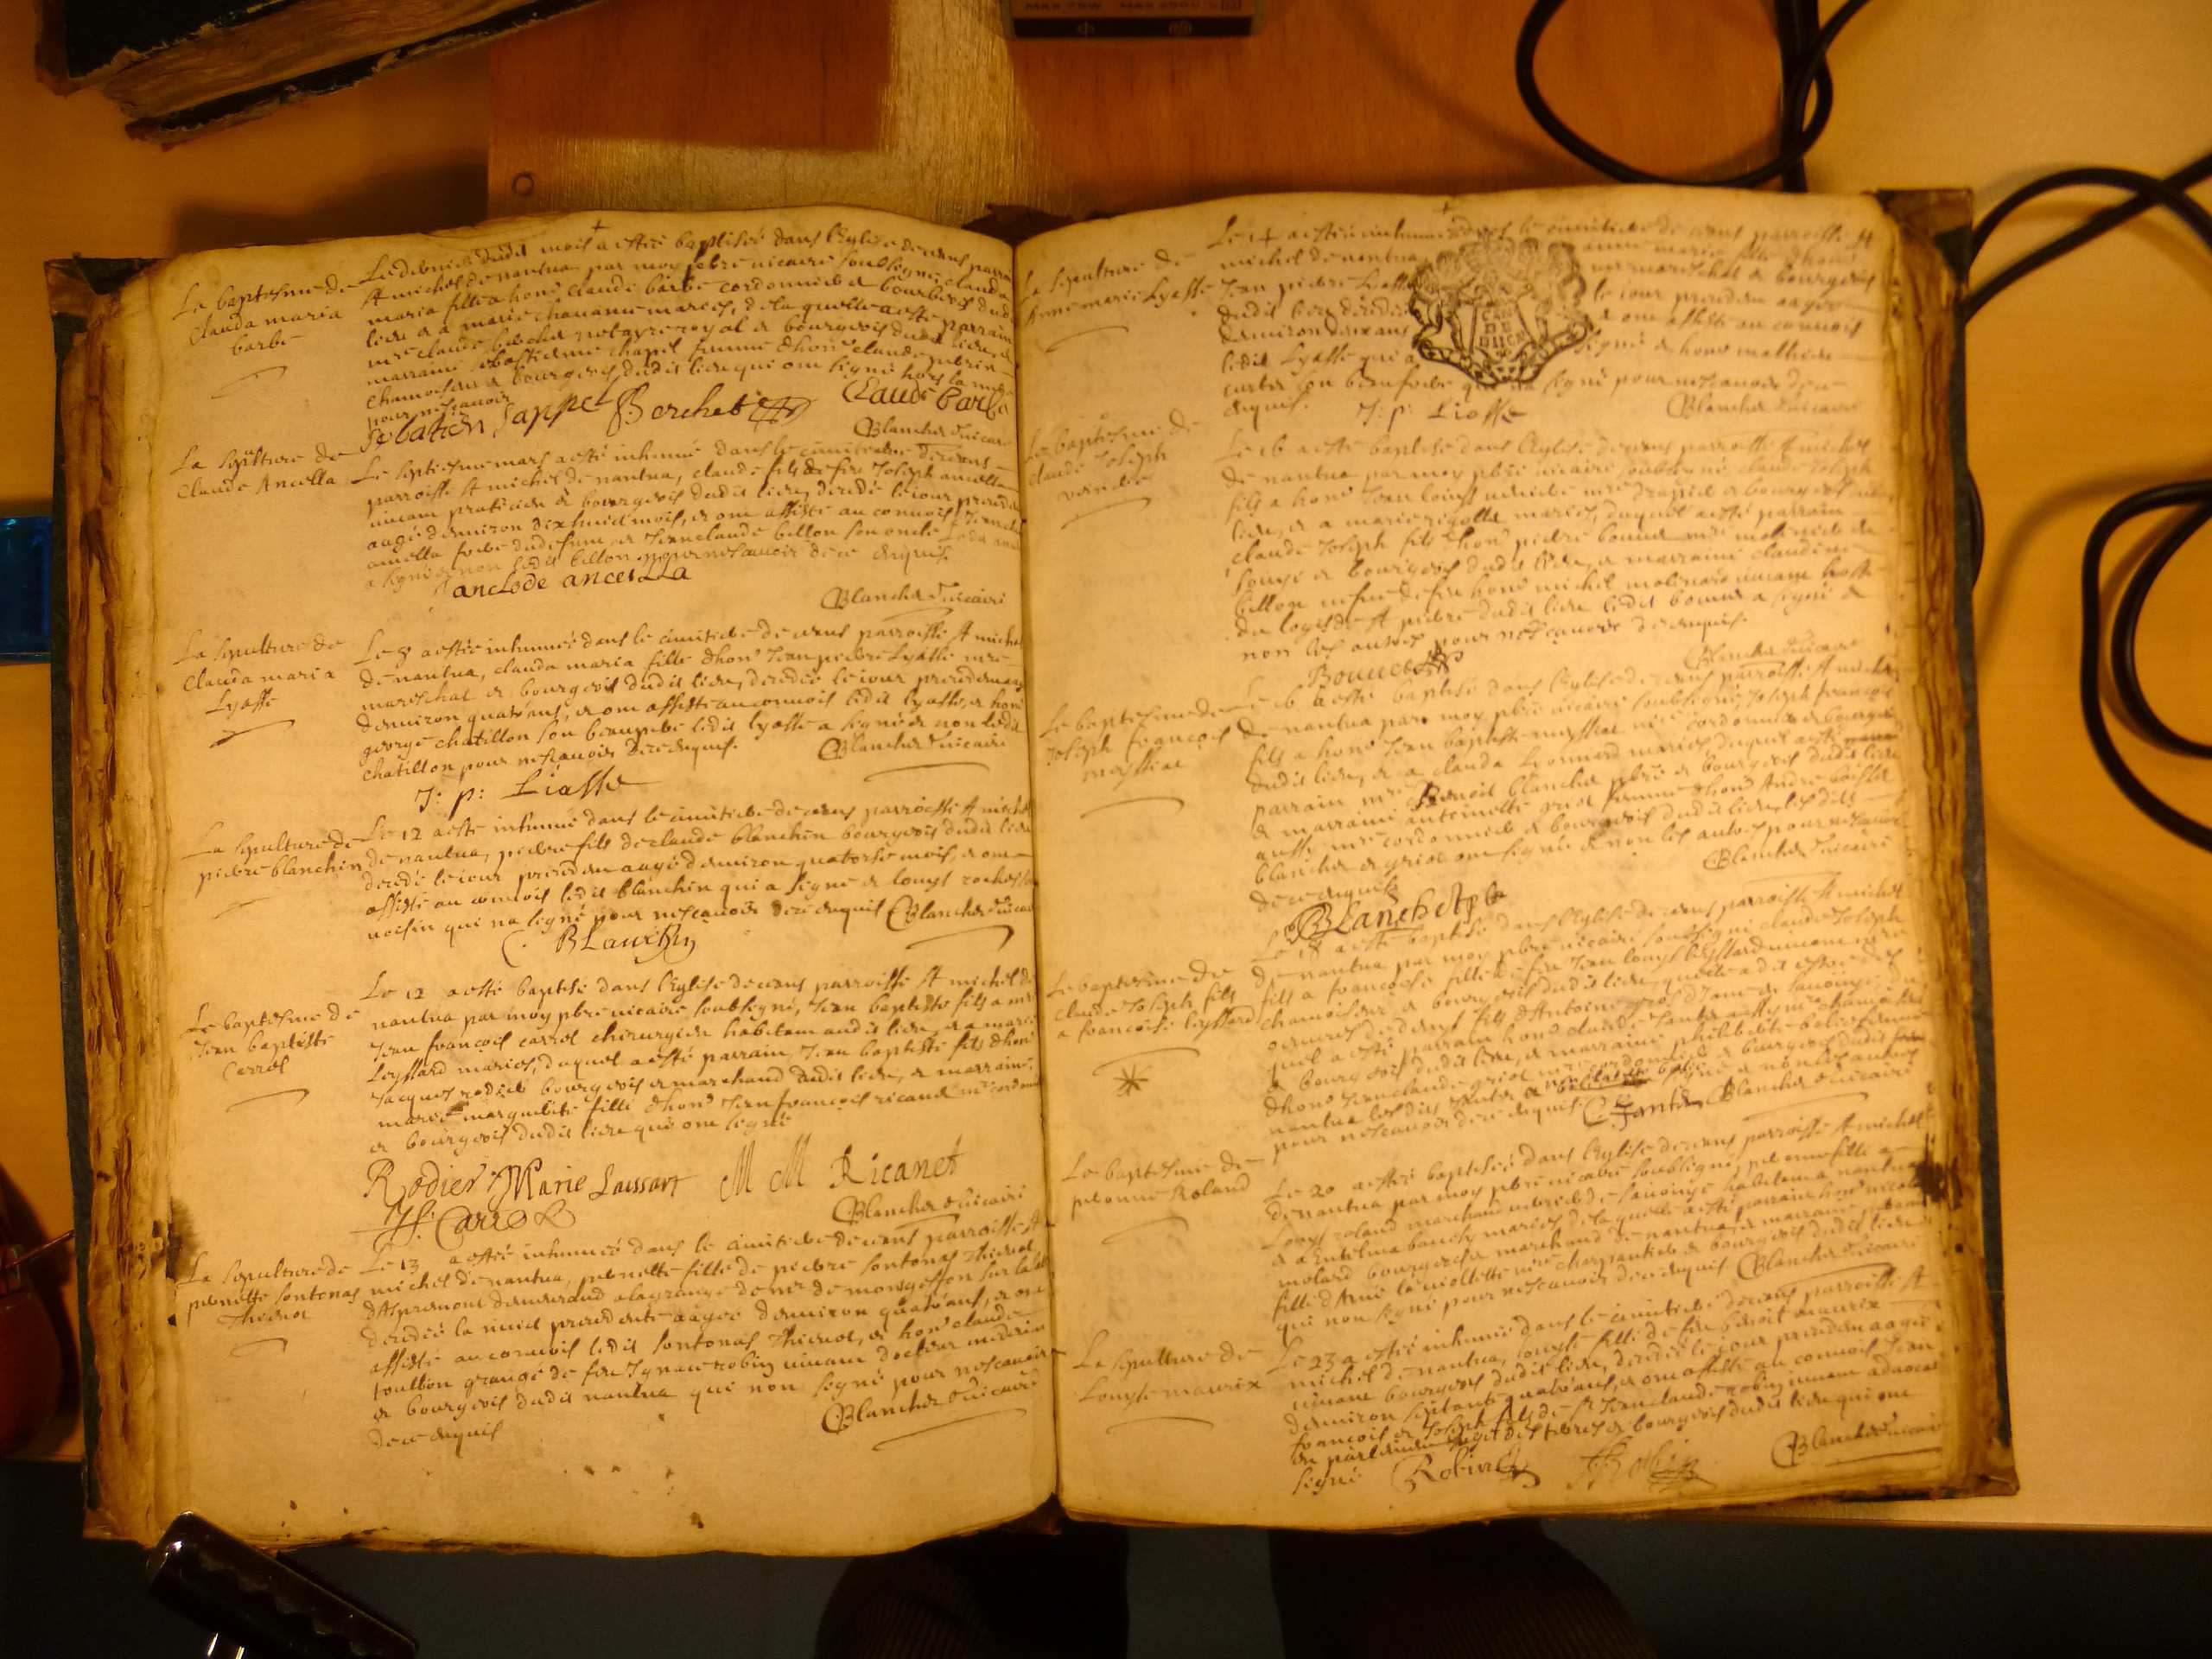 Le baptesme de
clauda maria
barbe
Le dernier dudit mois a esté baptiseé dans leglise de ceans parroisse
St michel de nantua par moy pbre vicaire soubsigné clauda
maria fille a honᵉ claude barbe cordonnier et bourgeois dudit
lieu et a marie mariés, de laquelle a esté parrain
mre claude berchet notayre royal et bourgeois dudit lieu, et
marraine sebastienne chapel femme dhonᵉ claude
chamoiseur et bourgeois dudit lieu qui ont signé hors la
pour ne scavoir
Berchet
Claude Barbe
Blanchet vicaire
La sepulture de
Claude Ancella
Le septiesme mars a esté inhumé dans le cimitiere de ceans
parroisse St michel de nantua, claude fils de feu Joseph ancella
vivant praticien et bourgeois dudit lieu, decedé le jour precedent
aagé denviron dix huict mois, et ont assisté au convois Jean
ancella frere dudefunt, et Jean claude billon son oncle
a signé et non ledit billon pour ne scavoir de ce enquis
Janclode ancella
Blanchet vicaire
La sepulture de
Clauda maria
Lyasse
Le 8 a esté inhumeé dans le cimitiere de ceans parroisse St michel
de nantua, clauda maria fille dhonᵉ Jean pierre Lyasse mre
mareschal et bourgeois dudit lieu, decedeé le jour precedent aagé
denviron quatre ans, et ont assisté au convois ledit lyasse, et honᵉ
george chatillon son beaupere ledit lyasse a signé et non ledit
chatillon pour ne scavoir de ce enquis.
Blanchet vicaire
J: p: Liasse
La sepulture de
pierre blanchin
Le 12 a esté inhumé dans le cimitiere de ceans parroisse St michel
de nantua, pierre fils de claude blanchin bourgeois dudit lieu
decedé le jour precedent aagé denviron quatorse mois, et ont
assisté au convois ledit blanchin qui a signé et louys
voisin qui na signé pour ne scavoir de ce enquis Blanchet vicaire
BLanchin
Le baptesme de
Jean baptiste
Carrol
Le 12 a esté baptisé dans leglise de ceans parroisse St michel de
nantua par moy pbre vicaire soubsigné, Jean baptiste fils a mre
Jean françois carrol chirurgien habitant audit lieu, et a marie
Leyssard mariés, duquel a esté parrain, Jean baptiste fils dhonᵉ
Jacques rodier bourgeois et marchand dudit lieu, et marraine,
marie marguerite fille dhonᵉ Jean françois ricanet mre cordonnier
et bourgeois dudit lieu qui ont signé
Rodier Marie Laissart M M Ricanet
Jf. Carrol
Blanchet vicaire
La sepulture de
pernette sontonas
Thienot
Le 13 a esté inhumeé dans le cimitiere de ceans parroisse St
michel de nantua, pernette fille de pierre sontonas Thienot
daspremont demeurand a la grange de mr de mongeffon sur
decedeé la nuict precedente aageé denviron quatre ans, et ont
assisté au convois ledit sontonas Thienot, et honᵉ claude
foulbon granger de feu Ignace robin vivant docteur medecin
et bourgeois dudit nantua qui non signé pour ne scavoir
de ce enquis
Blanchet vicaire
La sepulture de
Anne marie Lyasse
Le 14 a esté inhumeé dans le cimitiere de ceans parroisse St
michel de nantua anne marie fille dhonᵉ
Jean pierre Lyasse mre mareschal et bourgeois
dudit lieu decedeé le jour precedent aageé
denviron deux ans et ont assisté au convois
ledit Lyasse qui a signé et honᵉ mathieu
son beaufrere qui na signé pour ne scavoir de ce
enquis.
J: p: Liasse
Blanchet vicaire
Le baptesme de
claude Joseph
Le 16 a esté baptisé dans leglise de ceans parroisse St michel
de nantua par moy pbre vicaire soubsigné, claude Joseph
fils a honᵉ Jean louys mre drapier et bourgeois dudit
lieu, et a marie mariés, duquel a esté parrain
claude Joseph fils dhonᵉ pierre bonnet
et bourgeois dudit lieu, et marraine claudine
billon vefve de feu honᵉ michel molinard vivant hoste
du logis de St pierre dudit lieu ledit bonnet a signé et
non les autres pour ne scavoir de ce enquis.
Bonnet
Blanchet vicaire
Le baptesme de
Joseph françois
Le 16 a esté baptisé dans leglise de ceans parroisse St michel
de nantua par moy pbre vicaire soubsigné, Joseph françois
fils a honᵉ Jean baptiste mre cordonnier et bourgeois
dudit lieu, et a clauda Leonnard mariés duquel a esté
parrain mre Benoit blanchet pbre et bourgeois dudit lieu
et marraine antoinette griot femme dhonᵉ André
aussy mre cordonnier et bourgeois dudit lieu, lesdits
blanchet et griot ont signé et non les autres pour ne scavoir
de ce enquis
Blanchet vicaire
BLanchet pbr
Le baptesme de
claude Joseph fils
a françoise leyssard
Le 18 a esté baptisé dans leglise de ceans parroisse St michel
de nantua par moy pbre vicaire soubsigné claude Joseph
fils a françoise fille de feu Jean louys leyssard vivant mre
chamoiseur et bourgeois dudit lieu, quelle a dit estre des
fils dAntoine gros de savoye, du
quel a esté parrain honᵉ claude Jantet
et bourgeois dudit lieu, et marraine philiberte
dhonᵉ Jean claude griot mre cordonnier et bourgeois dudit
nantua signé et non les autres
pour ne scavoir de ce enquis. C Jantet Blanchet vicaire
Le baptesme de
peronne Roland
Le 20 a esté baptiseé dans leglise de ceans parroisse St michel
de nantua par moy pbre vicaire soubsigné, peronne fille a
Louys roland marchand de savoye habitant a nantua
et a Anthelma mariés de laquelle a esté parrain honᵉ
molard bourgeois et marchand de nantua, et marraine peronne
fille dAmé la violette mre charpentier et bourgeois dudit lieu
qui non signé pour ne scavoir de ce enquis Blanchet vicaire
La sepulture de
Louyse maurix
Le 23 a esté inhumeé dans le cimitiere de ceans parroisse St
michel de nantua, louyse fille de feu benoit maurix
vivant bourgeois dudit lieu, decedeé le jour precedent aageé
denviron septante quatre ans, et ont assisté au convois Jean
françois et Joseph fils de Sr Jean claude robin vivant advocat
en parlement et bourgeois dudit lieu qui ont
signé Robin Robin
Blanchet vicaire